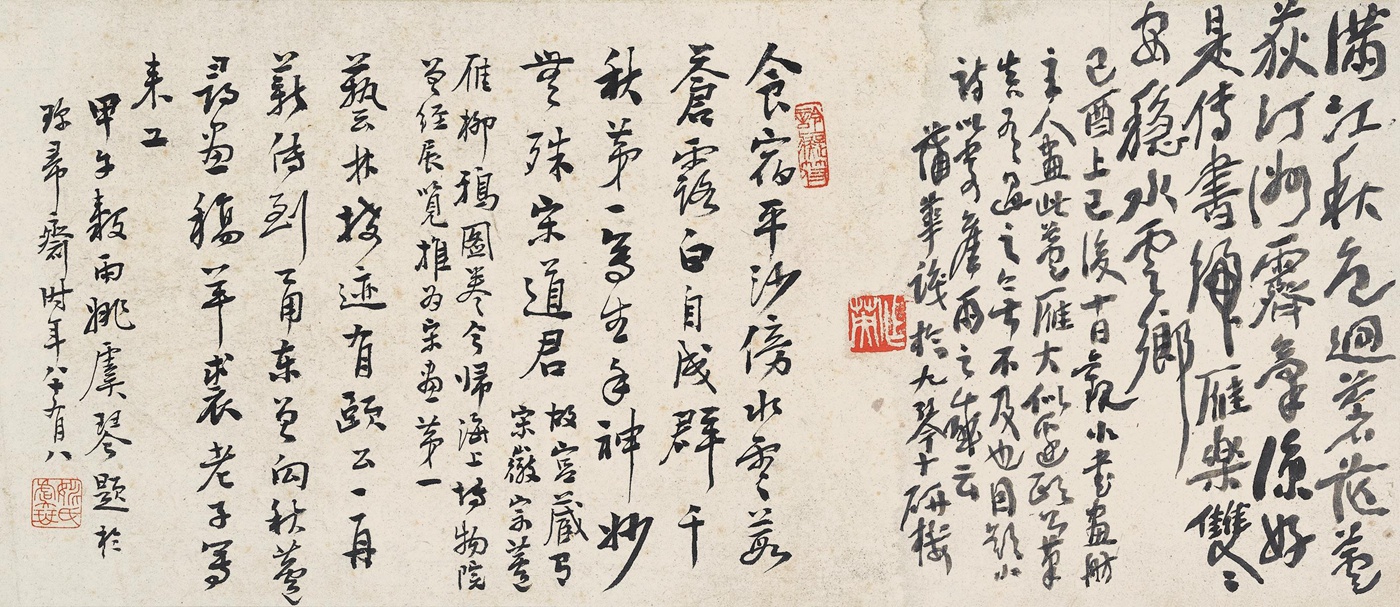 滿江秋色迥蒼茫蘆
荻汀洲霽氣涼好
是傳書歸雁樂雙〻
安穩水雲鄉
己酉上巳後十日觀小書畫舫
主人畫此蘆雁大似邊頤公筆
真有過之無不及也因題小
詩以寄舊雨之感云
蒲華識於九琴十研樓
作英
食宿平沙傍水雲葭
蒼露白自成群千
秋第一寫生手神妙
無殊宋道君 故宮藏有
宋徽宗蘆
雁柳鴉圖卷今歸海上博物院
曾經展覽推為宋畫第一
藝林迹有頤公一再
薪傳到甬東曾向秋蘆
尋畫稿羊裘老子寫
來工
甲午穀雨姚虞琴題於
珍帚齋時年八十有八
姚氏虞琴